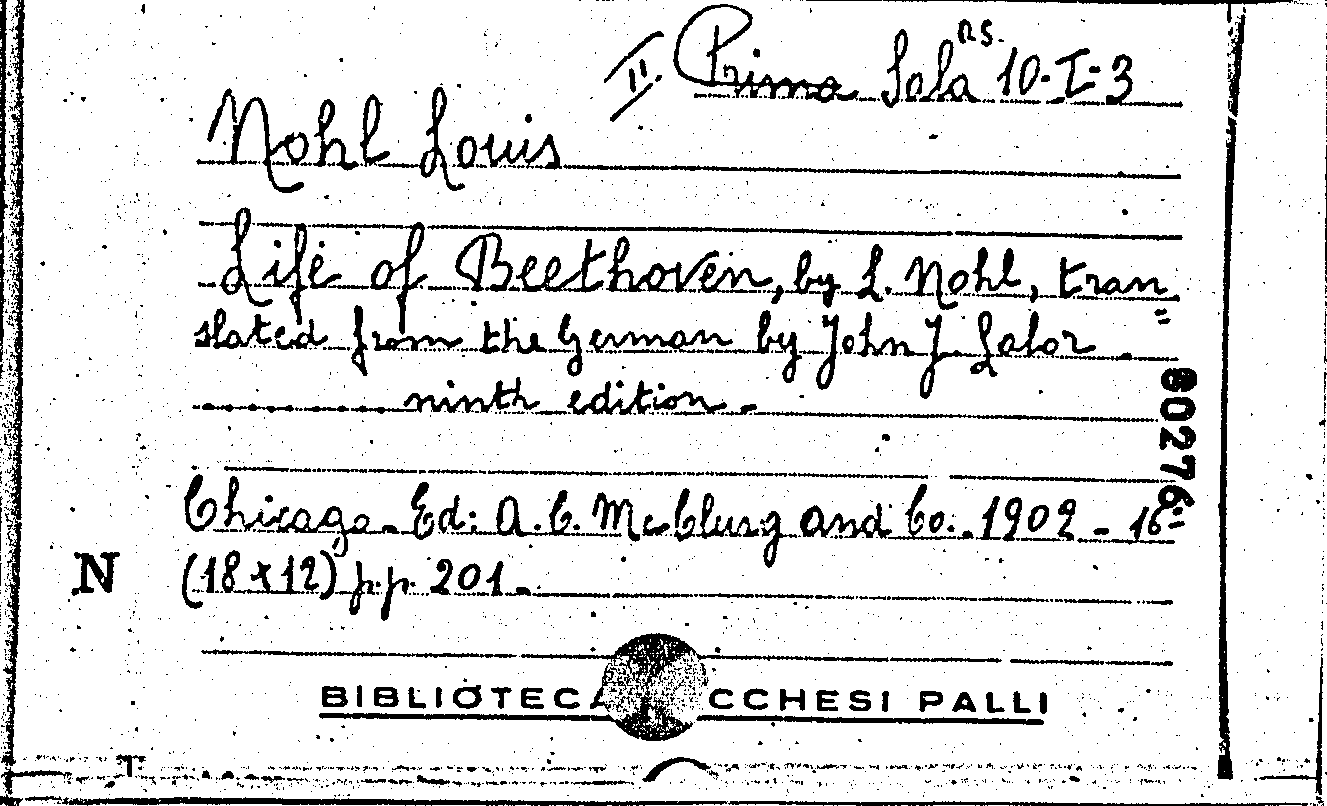 II. Prima Sala n.s. 10-I-3
Nohl Louis
Life of Beethoven, by L. Nohl, tran=
slated from the German by John J. Lalor.
............ ninth edition.-
80276
Chicago. Ed: A. C. McClurg and Co. 1902 - 16º
N (18x12) pp. 201.
BIBLIOTECA CCHESI PALLI